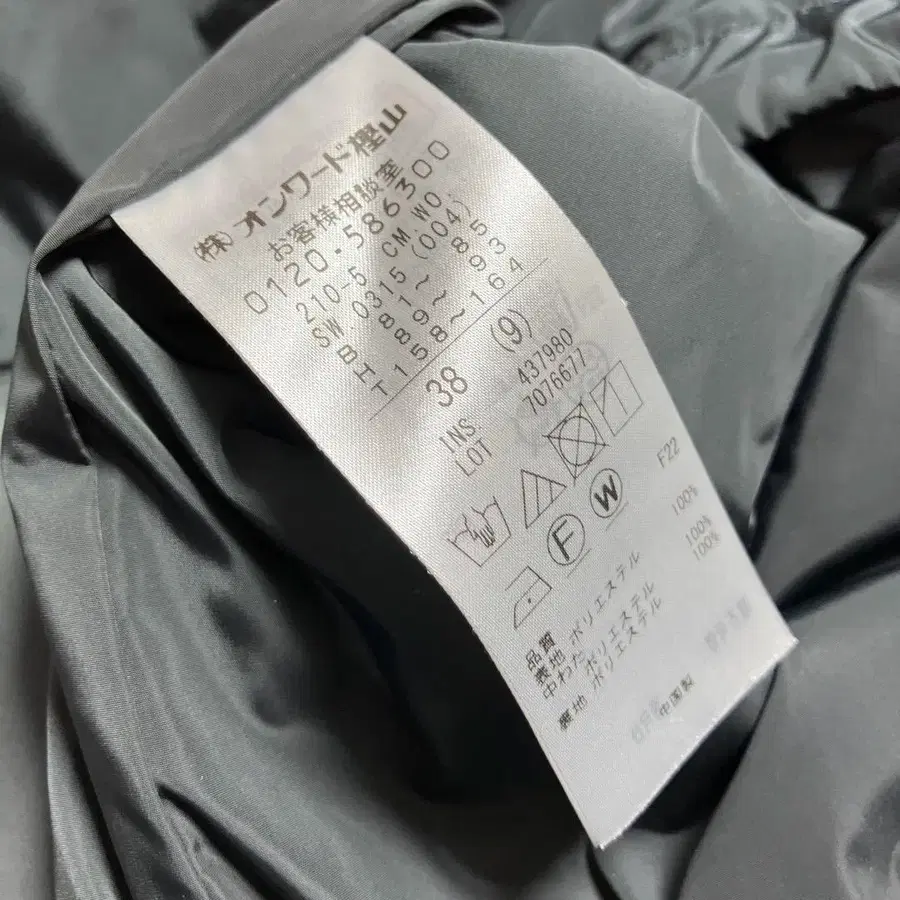 (株)オンワード樫山
お客様相談室
0120・586300
210-5 CM.WO.
SW.0315 (004)
B 81～ 85
H 89～ 93
T 158～164
38 (9)
INS. 437980
LOT 7076677
F W F22
品質
表地 ポリエステル 100%
中わた ポリエステル 100%
裏地 ポリエステル 100%
中国製